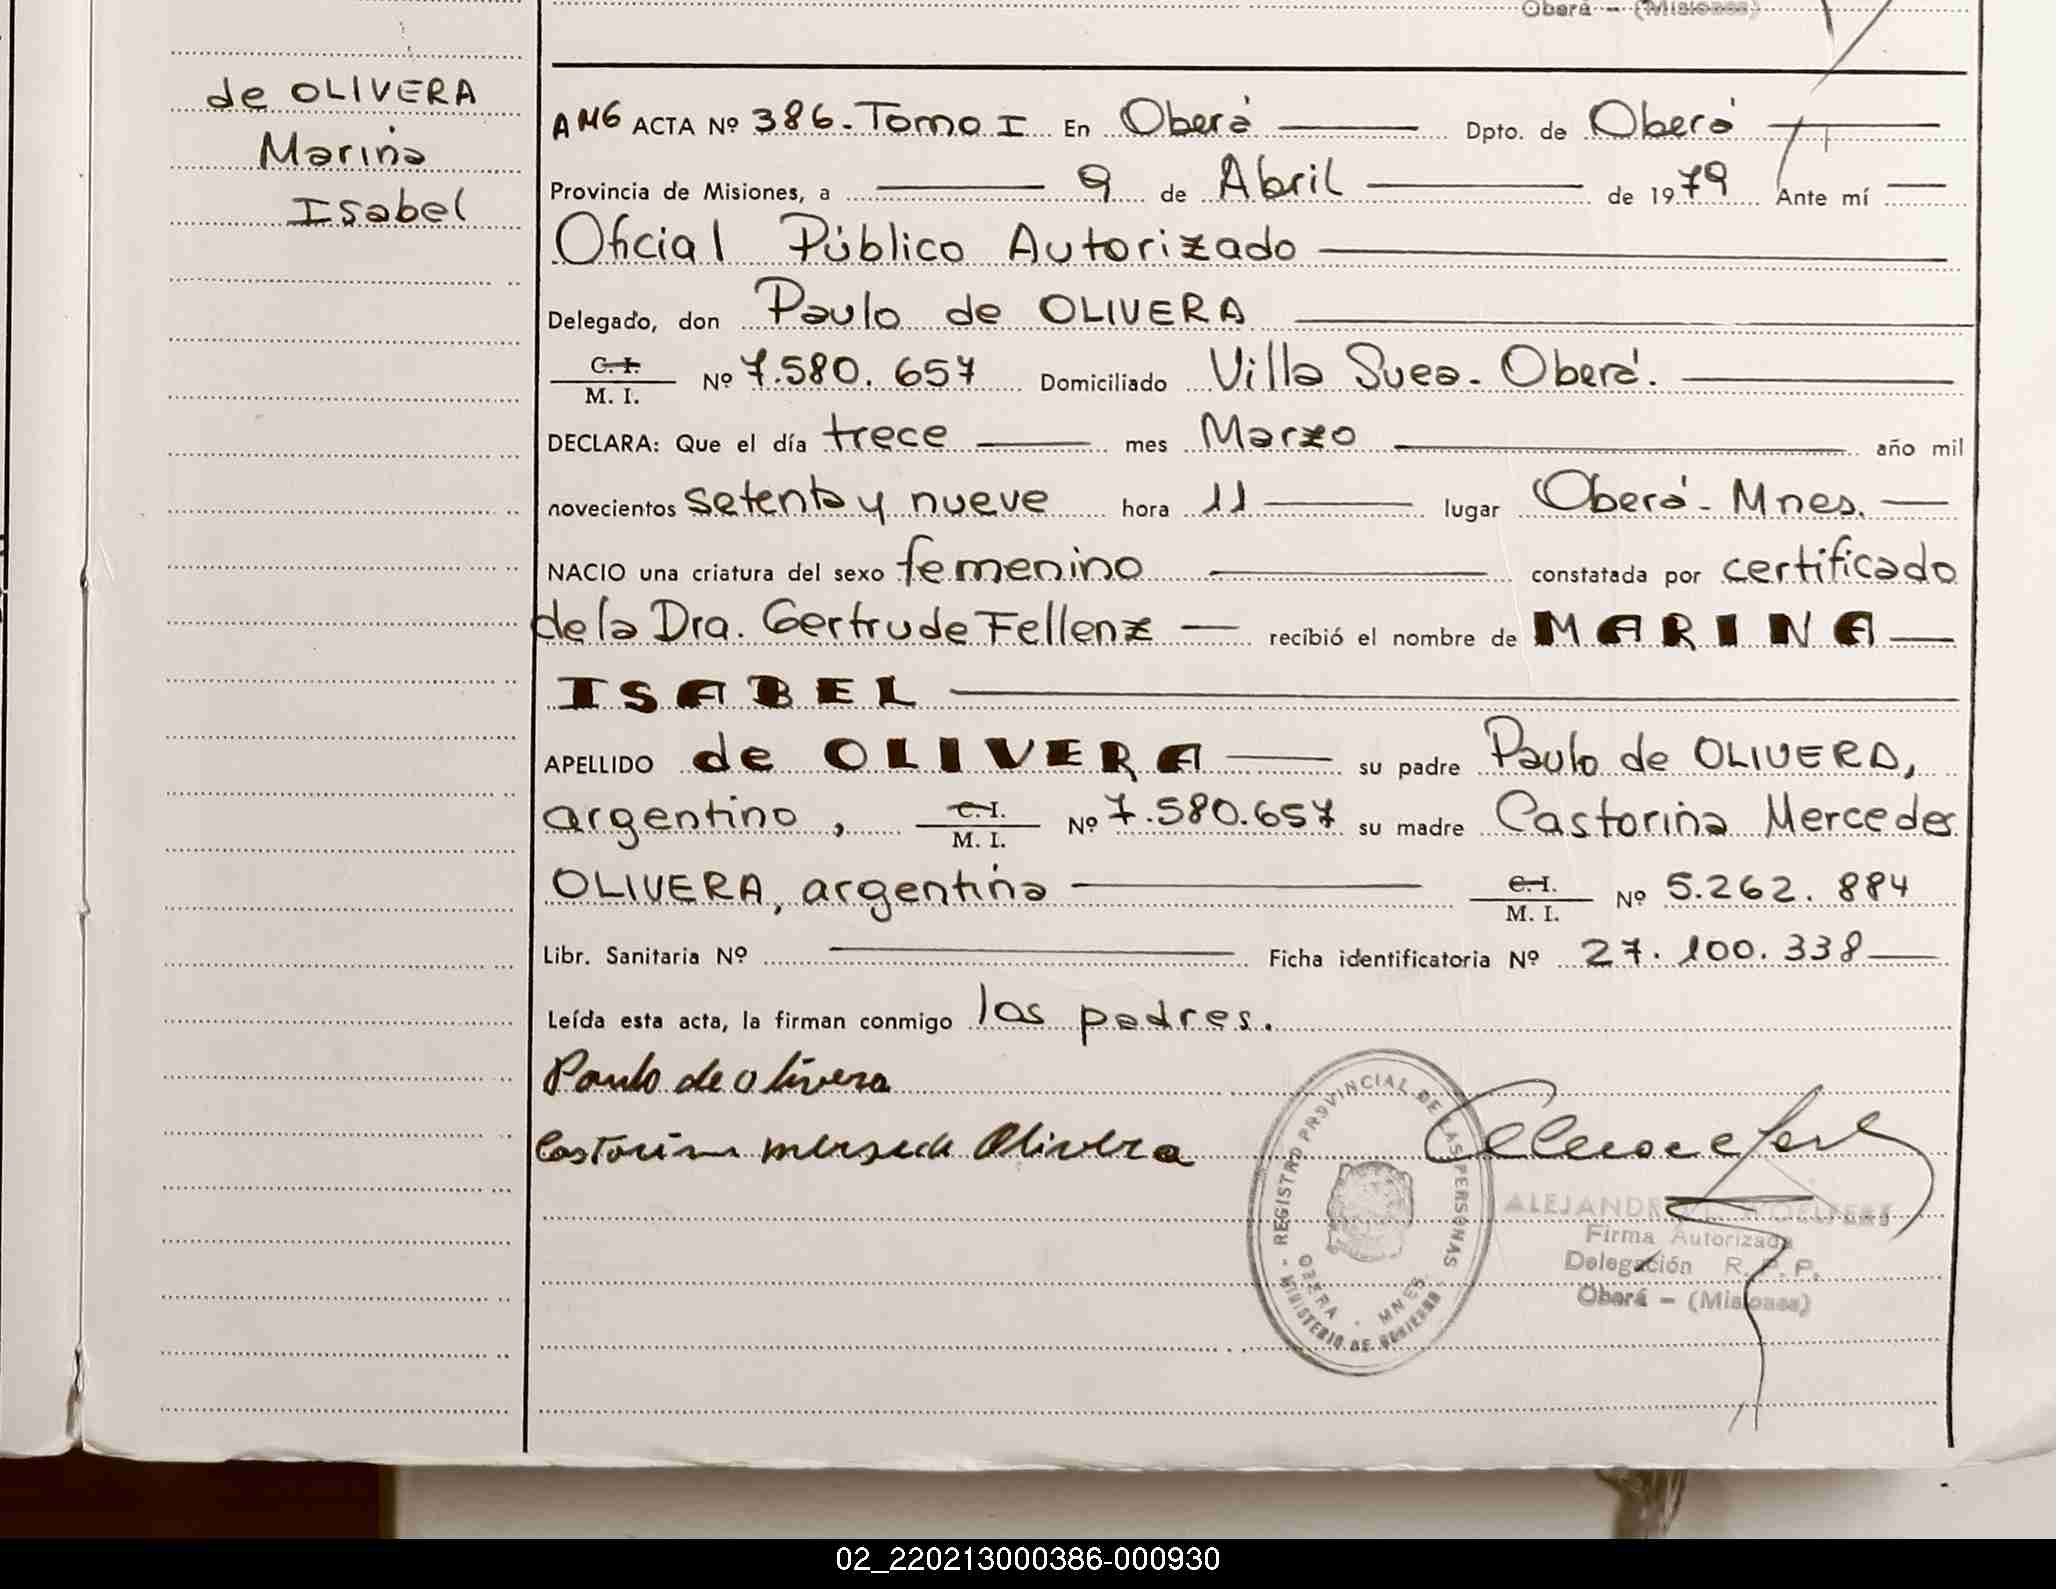 Oberá - (Misiones)
de OLIVERA
Marina
Isabel
AMG ACTA Nº 386-Tomo I En Oberá Dpto. de Oberá
Provincia de Misiones, a 9 de Abril de 1979 Ante mí
Oficial Público Autorizado
Delegado, don Paulo de OLIVERA
C. I.
M. I. Nº 7.580.657 Domiciliado Villa Suea-Oberá.
DECLARA: Que el día trece mes Marzo año mil
novecientos setenta y nueve hora 11 lugar Oberá-Mnes.
NACIO una criatura del sexo femenino constatada por certificado
de la Dra. Gertrude Fellenz recibió el nombre de MARINA
ISABEL
APELLIDO de OLIVERA su padre Paulo de OLIVERA,
argentino, C.I.
M. I. Nº 7.580.657 su madre Castorina Mercedes
OLIVERA, argentina C.I.
M. I. Nº 5.262.884
Libr. Sanitaria Nº Ficha identificatoria Nº 27.100.338
Leída esta acta, la firman conmigo los padres.
Paulo de olivera
Castorina Olivera
REGISTRO PROVINCIAL DE LAS PERSONAS
OBERA - MNES
MINISTERIO DE GOBIERNO
Firma Autorizada
Delegación R.P.P.
Oberá - (Misiones)
02_220213000386-000930